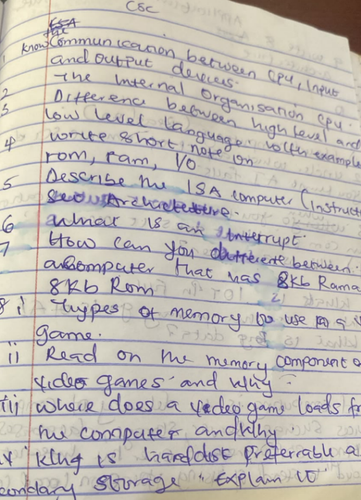 CSC
CSA
Know Communication between Cpu, Input
and output devices.
2 The Internal Organisation Cpu.
3 Difference between high level and
low level language. With example
4 Write short note on
rom, ram, I/O
5 Describe the ISA computer (Instruct
Set Architecture.
6 What is an Interrupt.
7 How can you differente between
a computer that has 8kb Rama
8kb Rom
8 i Types of memory to use in a
game.
ii Read on the memory component o
video games and why.
iii where does a video game loads fr
the computer and why
iv Why is harddisk preferable a
condary storage. Explain it